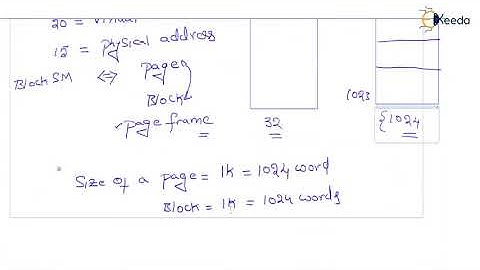 20 = Virtual
15 = physical address
Block SM ⇔ pages
Block
page frame
32
1023
{1024
Size of a page = 1K = 1024 word
Block = 1K = 1024 words
Ekeeda